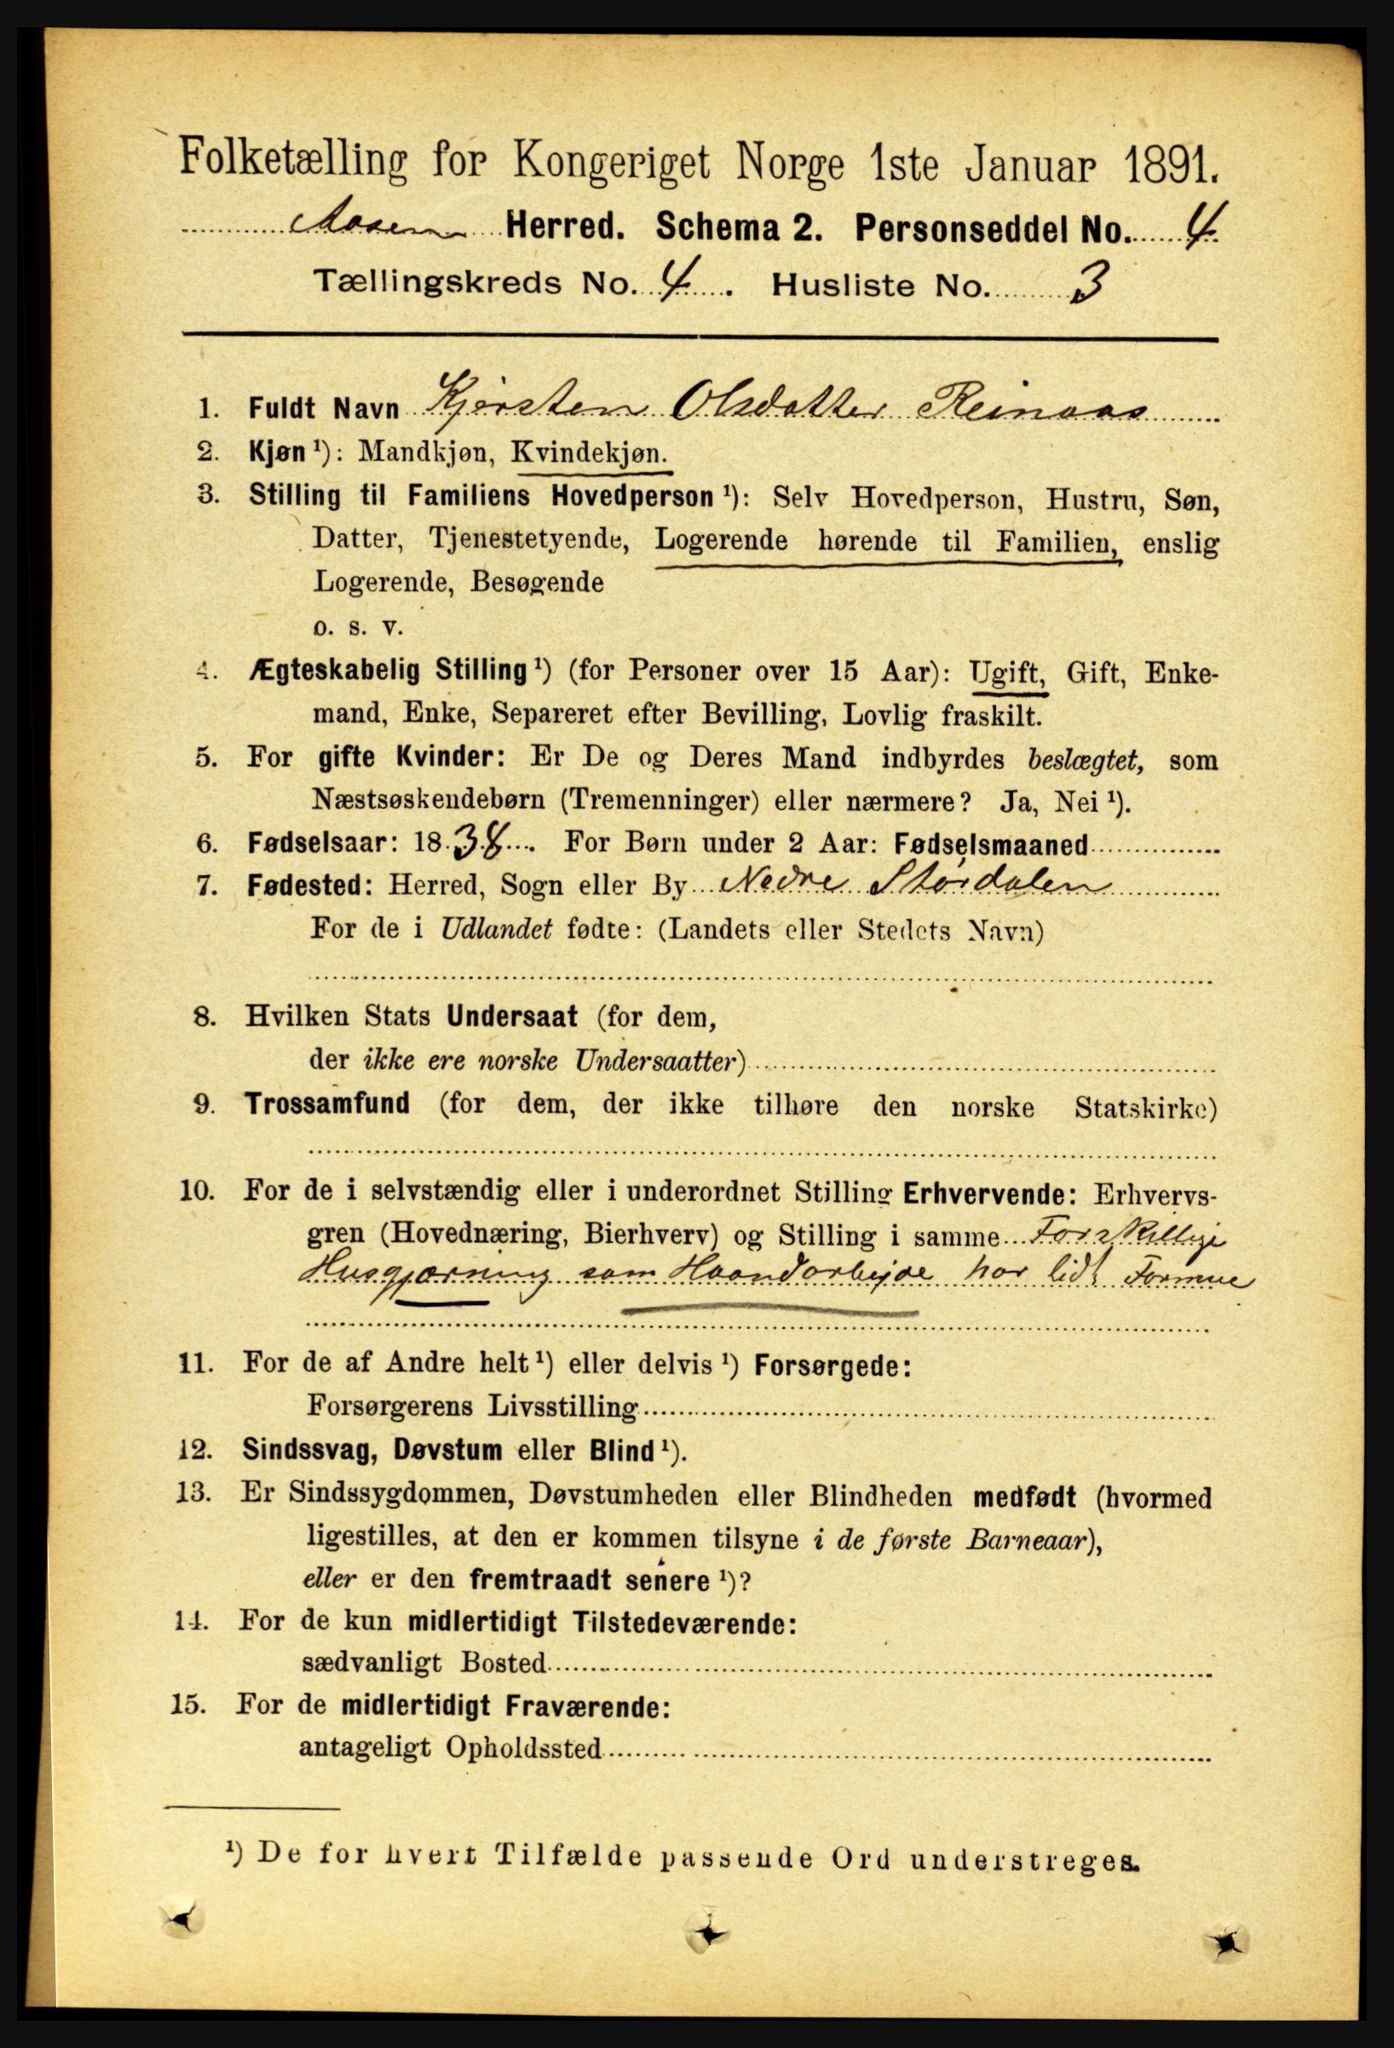 Folketælling for Kongeriget Norge 1ste Januar 1891.
Aasen Herred. Schema 2. Personseddel No. 4.
Tællingskreds No. 4. Husliste No. 3
1. Fuldt Navn Kjersten Olsdatter Reinaas
2. Kjøn ¹): Mandkjøn, Kvindekjøn.
3. Stilling til Familiens Hovedperson ¹): Selv Hovedperson, Hustru, Søn,
Datter, Tjenestetyende, Logerende hørende til Familien, enslig
Logerende, Besøgende
o. s. v.
4. Ægteskabelig Stilling ¹) (for Personer over 15 Aar): Ugift, Gift, Enke-
mand, Enke, Separeret efter Bevilling, Lovlig fraskilt.
5. For gifte Kvinder: Er De og Deres Mand indbyrdes beslægtet, som
Næstsøskendebørn (Tremenninger) eller nærmere? Ja, Nei ¹).
6. Fødselsaar: 1838. For Børn under 2 Aar: Fødselsmaaned
7. Fødested: Herred, Sogn eller By Nedre Størdalen
For de i Udlandet fødte: (Landets eller Stedets Navn)
8. Hvilken Stats Undersaat (for dem,
der ikke ere norske Undersaatter)
9. Trossamfund (for dem, der ikke tilhøre den norske Statskirke)
10. For de i selvstændig eller i underordnet Stilling Erhvervende: Erhvervs-
gren (Hovednæring, Bierhverv) og Stilling i samme Forskillige
Husgjærning som Haandarbejde har lidt Formue
11. For de af Andre helt ¹) eller delvis ¹) Forsørgede:
Forsørgerens Livsstilling
12. Sindssvag, Døvstum eller Blind ¹).
13. Er Sindssygdommen, Døvstumheden eller Blindheden medfødt (hvormed
ligestilles, at den er kommen tilsyne i de første Barneaar),
eller er den fremtraadt senere ¹)?
14. For de kun midlertidigt Tilstedeværende:
sædvanligt Bosted
15. For de midlertidigt Fraværende:
antageligt Opholdssted
¹) De for hvert Tilfælde passende Ord understreges.